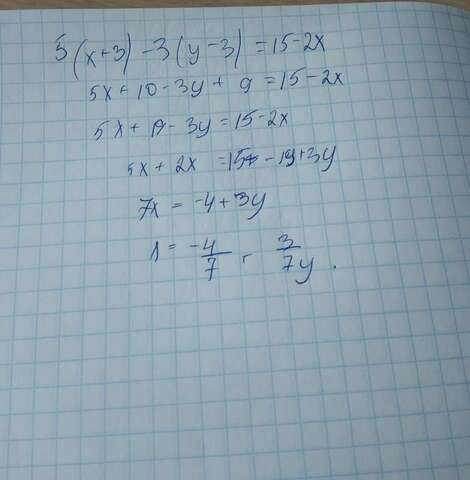 5(x+3)-3(y-3)=15-2x
5x+10-3y+9=15-2x
5x+19-3y=15-2x
5x+2x =15-19+3y
7x = -4+3y
x = -4/7 + 3/7y.